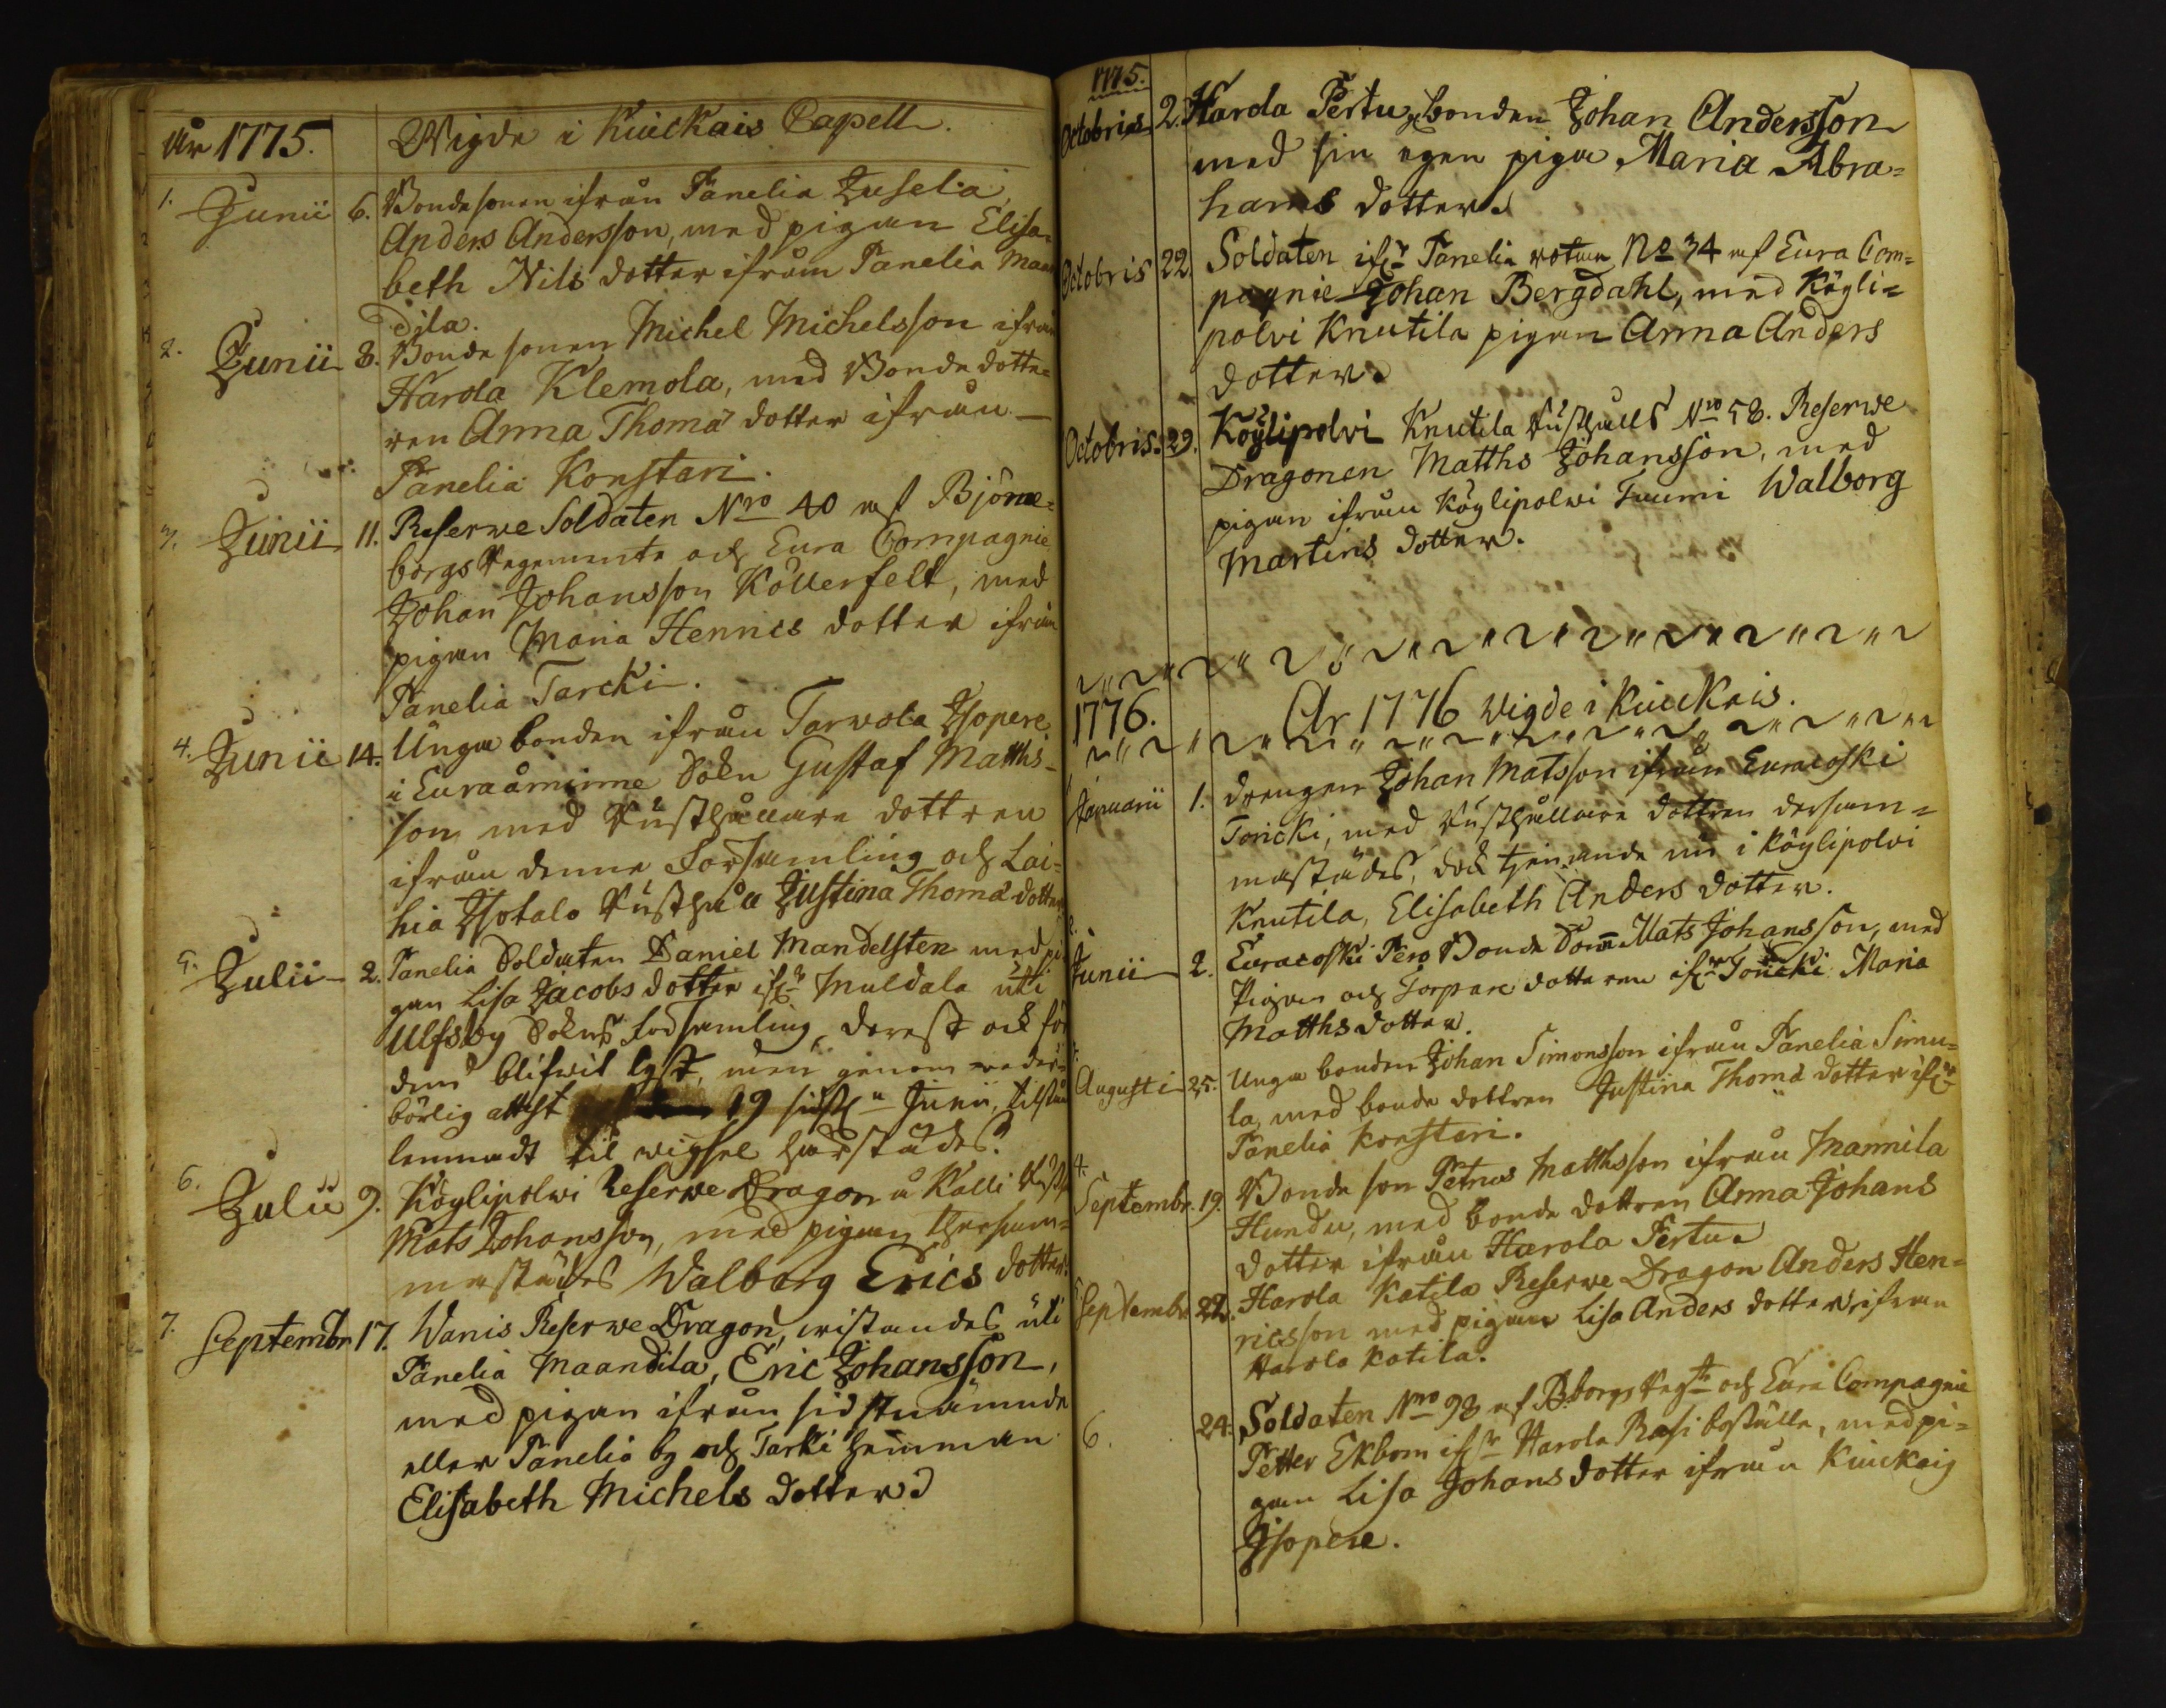 År 1775. Wigde i Kiuckais Capell.
1. Junii 6. Bondesonen ifrån Panelia Juselia,
Anders Andersson, med pigan Elisa-
beth Nils dotter ifrån Panelia Maan
dila.
2. Junii 8. Bonde sonen Michel Michelsson ifrån
Harola Klemola, med Bonde dotte-
ren Anna Thomæ dotter ifrån
Panelia Konstari.
3. Junii 11. Reserwe Soldaten Nro 40 af Björne-
borgs Regemente och Eura Compagnie
Johan Johansson Köllerfelt, med
pigan Maria Henrics dotter ifrån
Panelia Tarcki.
4. Junii 14. Unga bonden ifrån Tarvola Isopere
i Euraåminne Sokn Gustaf Matths-
son med Rusthållare dottren
ifrån denne Församling och Lai-
hia Isotalo Rusthåll Justina Thomæ dotter
5. Julii 2. Panelia Soldaten Daniel Mandelsten med pi
gan Lisa Jacobs dotter ifr Muldala uti
Ulfsby Sokns Församling, derest ock för
dem blifwit lyst, men genom weder-
börlig attest 19 sidstl Junii, tilstån
lemnadt til wigsel härstädes.
6. Julii 9. Köylipolwi Reserwe Dragon å Kalli Rusth
Mats Johansson, med pigan thersam-
mastädes Walborg Erics dotter.
7. Septembr 17. Wanis Reserwe Dragon, wistandes uti
Panelia Maandila, Eric Johansson,
med pigan ifrån sidstnämnde
eller Panelia by och Tarki hemman
Elisabeth Michels dotter.
1775.
Octobris 2. Harola Pertu, bonden Johan Andersson
med sin egen piga Maria Abra-
hams dotter.
Octobris 22. Soldaten ifr Panelia rotan No 34 af Eura Com-
pagnie Johan Bergdahl, med Köyli-
polvi Knutila pigan Anna Anders
dotter.
Octobris 29. Köylipolvi Knutila Rusthålls Nro 58. Reserwe
Dragonen Matths Johansson, med
pigan ifrån Köylipolwi Tuumi Walborg
Martins dotter.
1776. År 1776 wigde i Kiuckais.
Januarii 1. drengen Johan Matsson ifrån Euracoski
Toricki, med Rusthållare dottren dersam-
mastädes, dock tjenande nu i Köylipolvi
Knutila, Elisabeth Anders dotter.
2.
Junii 2. Euracoski Pero Bonde Son Mats Johansson, med
Pigan och Torpare dotteren ifr Toricki Maria
Matths dotter.
Augusti 25. Unga bonden Johan Simonsson ifrån Panelia Simu-
la, med bonde dottren Justina Thomæ dotter ifr
Panelia Konstari.
4.
Septembr. 19. Bonde son Petrus Matthsson ifrån Mannila
Hundu, med bonde dottren Anna Johans
dotter ifrån Harola Pertu.
Septembr 22. Harola Katila Reserwe Dragon Anders Hen-
ricsson med pigan Lisa Anders dotter ifrån
Harola Katila.
6. 24. Soldaten Nro 98 af B.borgs Regte och Eura Compagnie
Petter Ekbom ifr Harola Rasi boställe, med pi-
gan Lisa Johans dotter ifrån Kiuckais
Isopere.